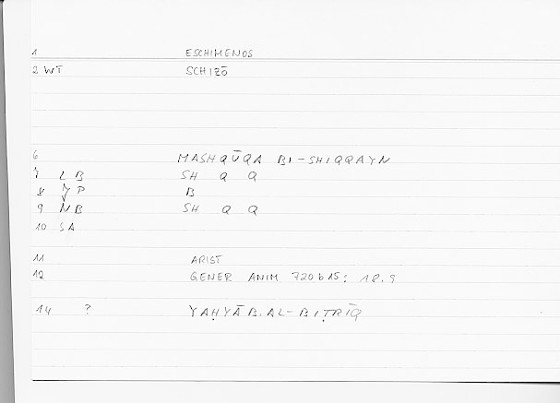 1 ESCHIMENOS
2 WT SCHIZŌ
6 MASHQŪQA BI-SHIQQAYN
7 LB SH Q Q
8 JP B
9 NB SH Q Q
10 SA
11 ARIST
12 GENER ANIM 720b15: 18.9
14 ? YAḤYĀ B. AL-BIṬRĪQ